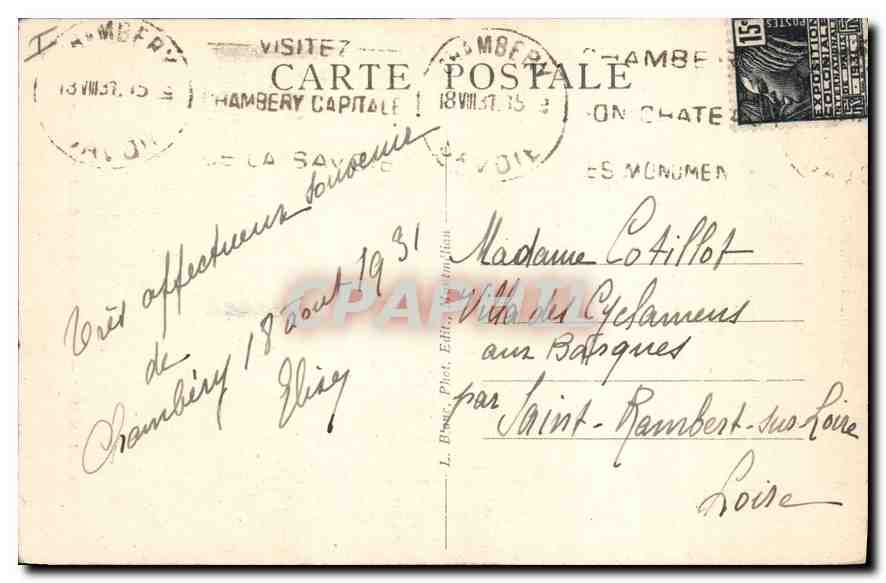 I
CHAMBERY
18 VIII 31. 15
SAVOIE
VISITEZ
CHAMBERY CAPITALE
DE LA SAVOIE
CHAMBERY
18 VIII 31. 15
SAVOIE
CHAMBE
SON CHATEA
SES MONUMEN
15c
POSTES
EXPOSITION
COLONIALE
INTERNATIONALE
PARIS 1931
CARTE POSTALE
Très affectueux souvenir
de
Chambéry 18 août 1931
L. Blanc, Phot. Edit., Montmélian
Madame Cotillot
Villa des Cyclamens
aux Barques
par Saint-Rambert-sur-Loire
Loire
CPAPHIL